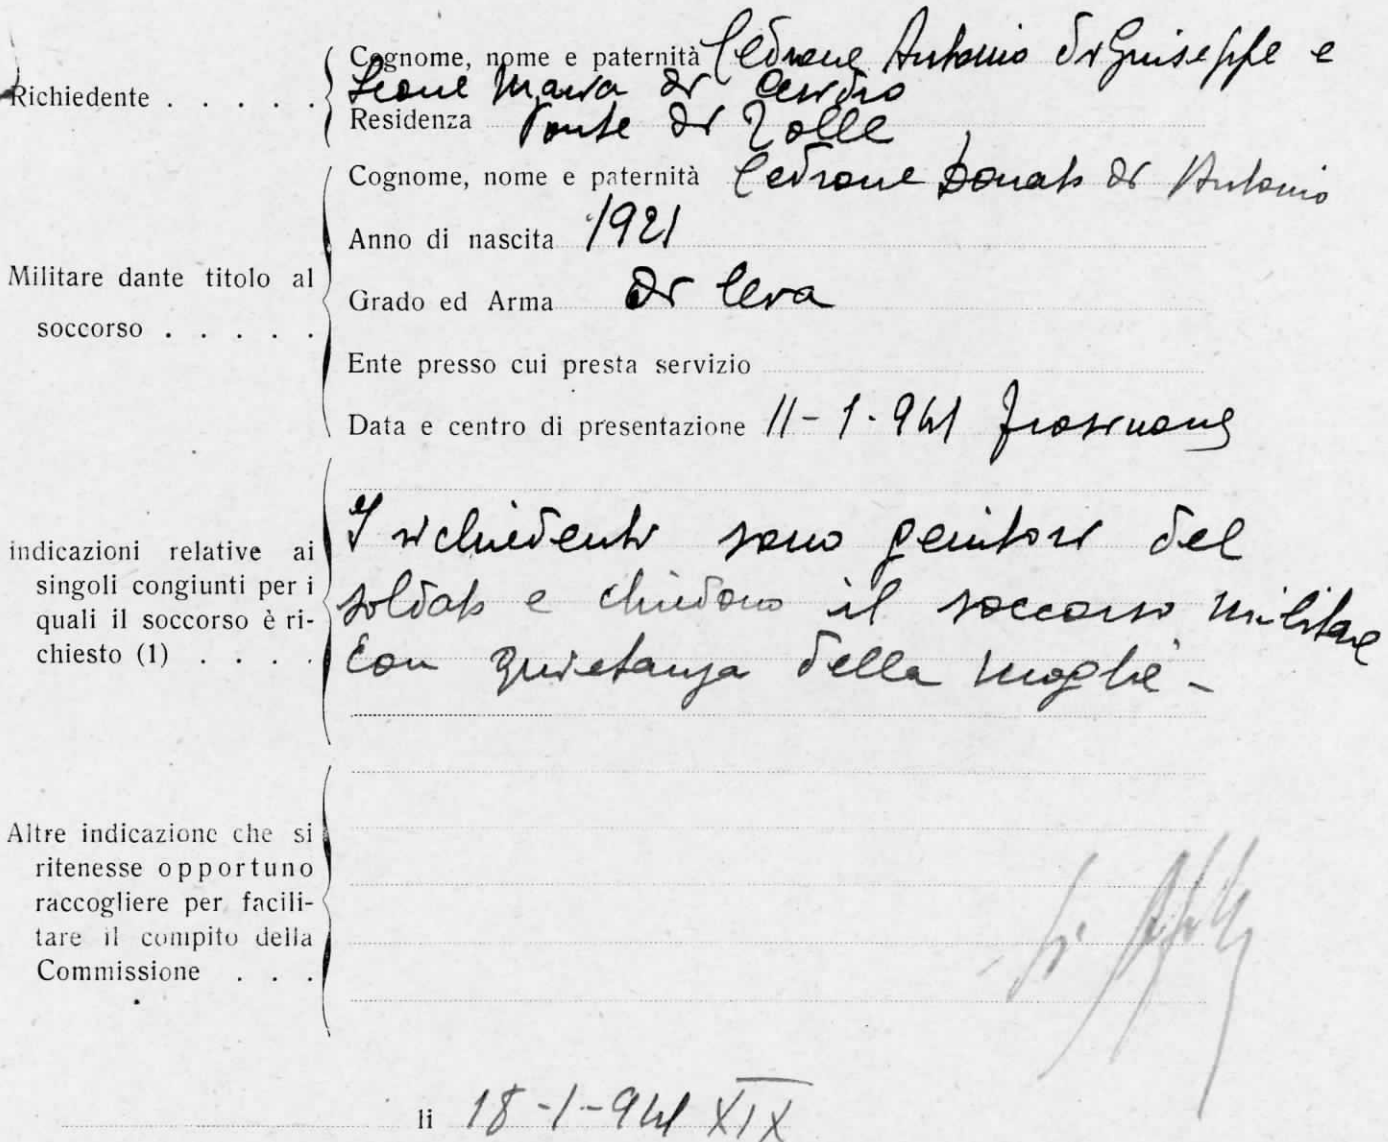 Richiedente . . . . .
Cognome, nome e paternità Cedrone Antonio di Giuseppe e
Leone Maria di
Residenza Ponte di
Militare dante titolo al
soccorso . . . . .
Cognome, nome e paternità Cedrone Donato di Antonio
Anno di nascita 1921
Grado ed Arma di leva
Ente presso cui presta servizio
Data e centro di presentazione 11-1-941 Frosinone
indicazioni relative ai
singoli congiunti per i
quali il soccorso è ri-
chiesto (1) . . . .
I richiedenti sono genitori del
soldato e chiedono il soccorso militare
con quietanza della moglie -
Altre indicazione che si
ritenesse opportuno
raccogliere per facili-
tare il compito della
Commissione . . .
li 18-1-941 XIX